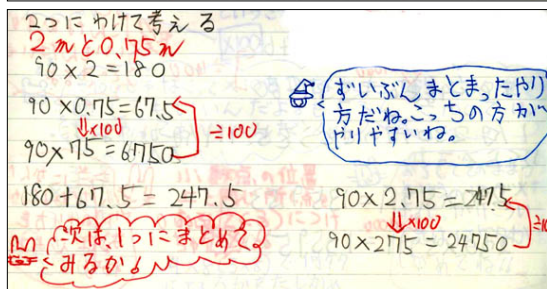 2つにわけて考える
2mと0.75m
90×2=180
90×0.75=67.5
⇓×100
÷100
90×75=6750
180+67.5=247.5
次は、1つにまとめて
みるか。
ずいぶん、まとまったやり
方だね。こっちの方が
やりやすいね。
90×2.75=247.5
⇓×100
90×275=24750